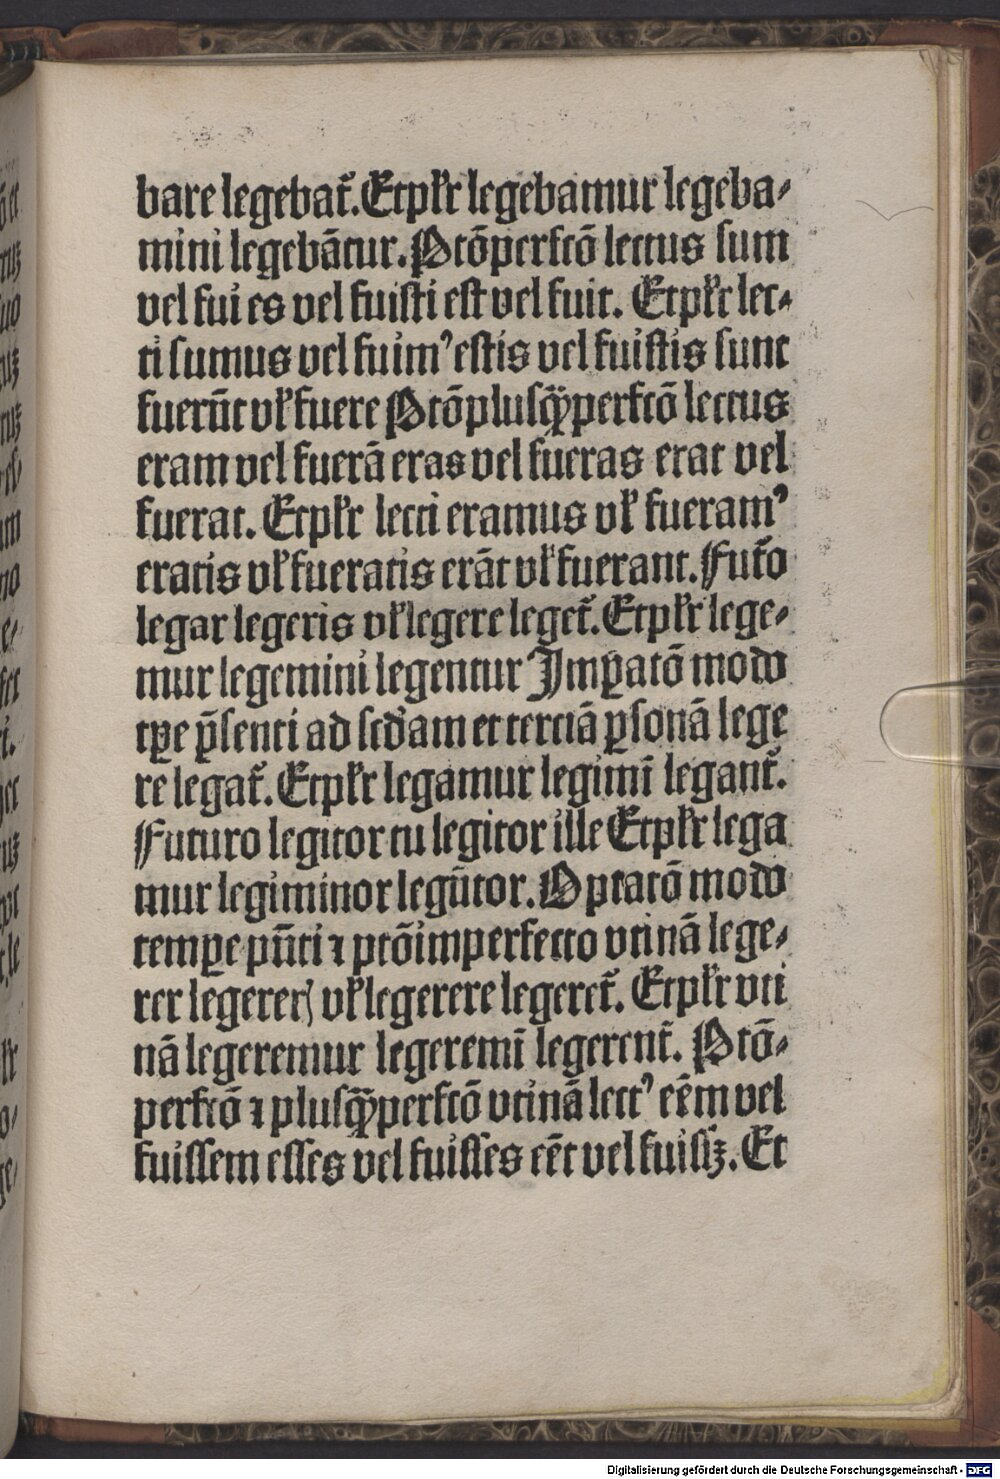 bare legebat᷑. Etpl̄r legebamur legeba⸗
mini legebātur. Ptōperfcō lectus sum
vel fui es vel fuisti est vel fuit. Etpl̄r lec⸗
ti sumus vel fuimꝰ estis vel fuistis sunt
fuerūt vl̄ fuere Ptōplusq̄ꝑfcō lectus
eram vel fuerā eras vel fueras erat vel
fuerat. Etpl̄r lecti eramus vl̄ fueramꝰ
eratis vl̄ fueratis erāt vl̄ fuerant. Fut᷑o
legar legeris vl̄ legere leget᷑. Etpl̄r lege⸗
mur legemini legentur Imꝑatō modo
tꝑe p̄senti ad scḋam et terciā ꝑsonā lege
re legat᷑. Etpl̄r legamur legimī legant᷑.
Futuro legitor tu legitor ille Etpl̄r lega
mur legiminor legūtor. Optatō modo
tempꝑe pn̄ti ⁊ ptōimperfecto vtinā lege⸗
rer legereꝝ vl̄ legerere legeret᷑. Etpl̄r vti
nā legeremur legeremī legerent᷑. Ptō⸗
perfcō ⁊ plusq̄ꝑfcō vtinā lectꝰ eēm vel
fuissem esses vel fuisses eēt vel fuisꝫ. Et
Digitalisierung gefördert durch die Deutsche Forschungsgemeinschaft - DFG